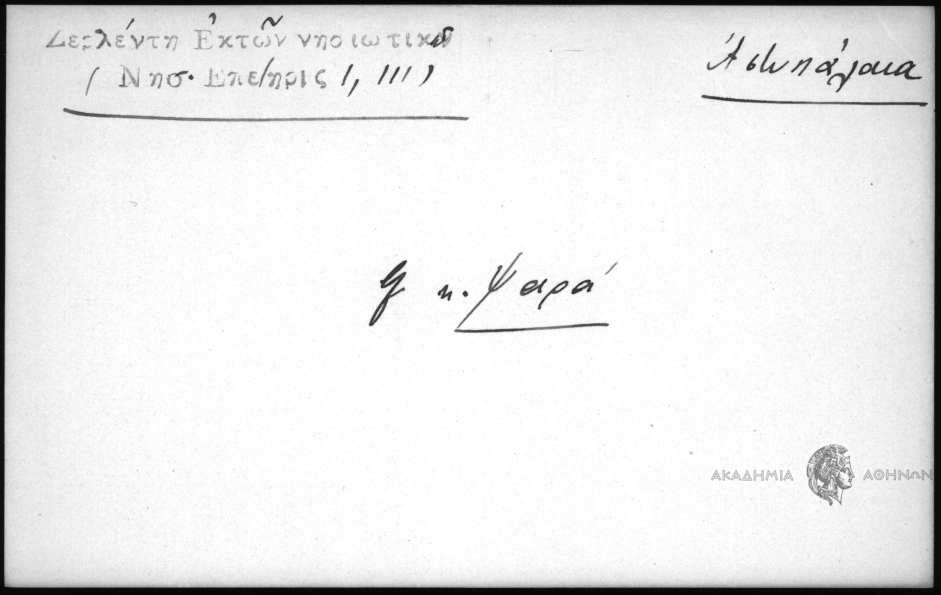 Δερλέντη Ἐκτῶν νησιωτικῶν
( Νησ. Επετηρις Ι, 111)
Ἀστυπάλαια
κ. Ψαρά
ΑΚΑΔΗΜΙΑ ΑΘΗΝΩΝ